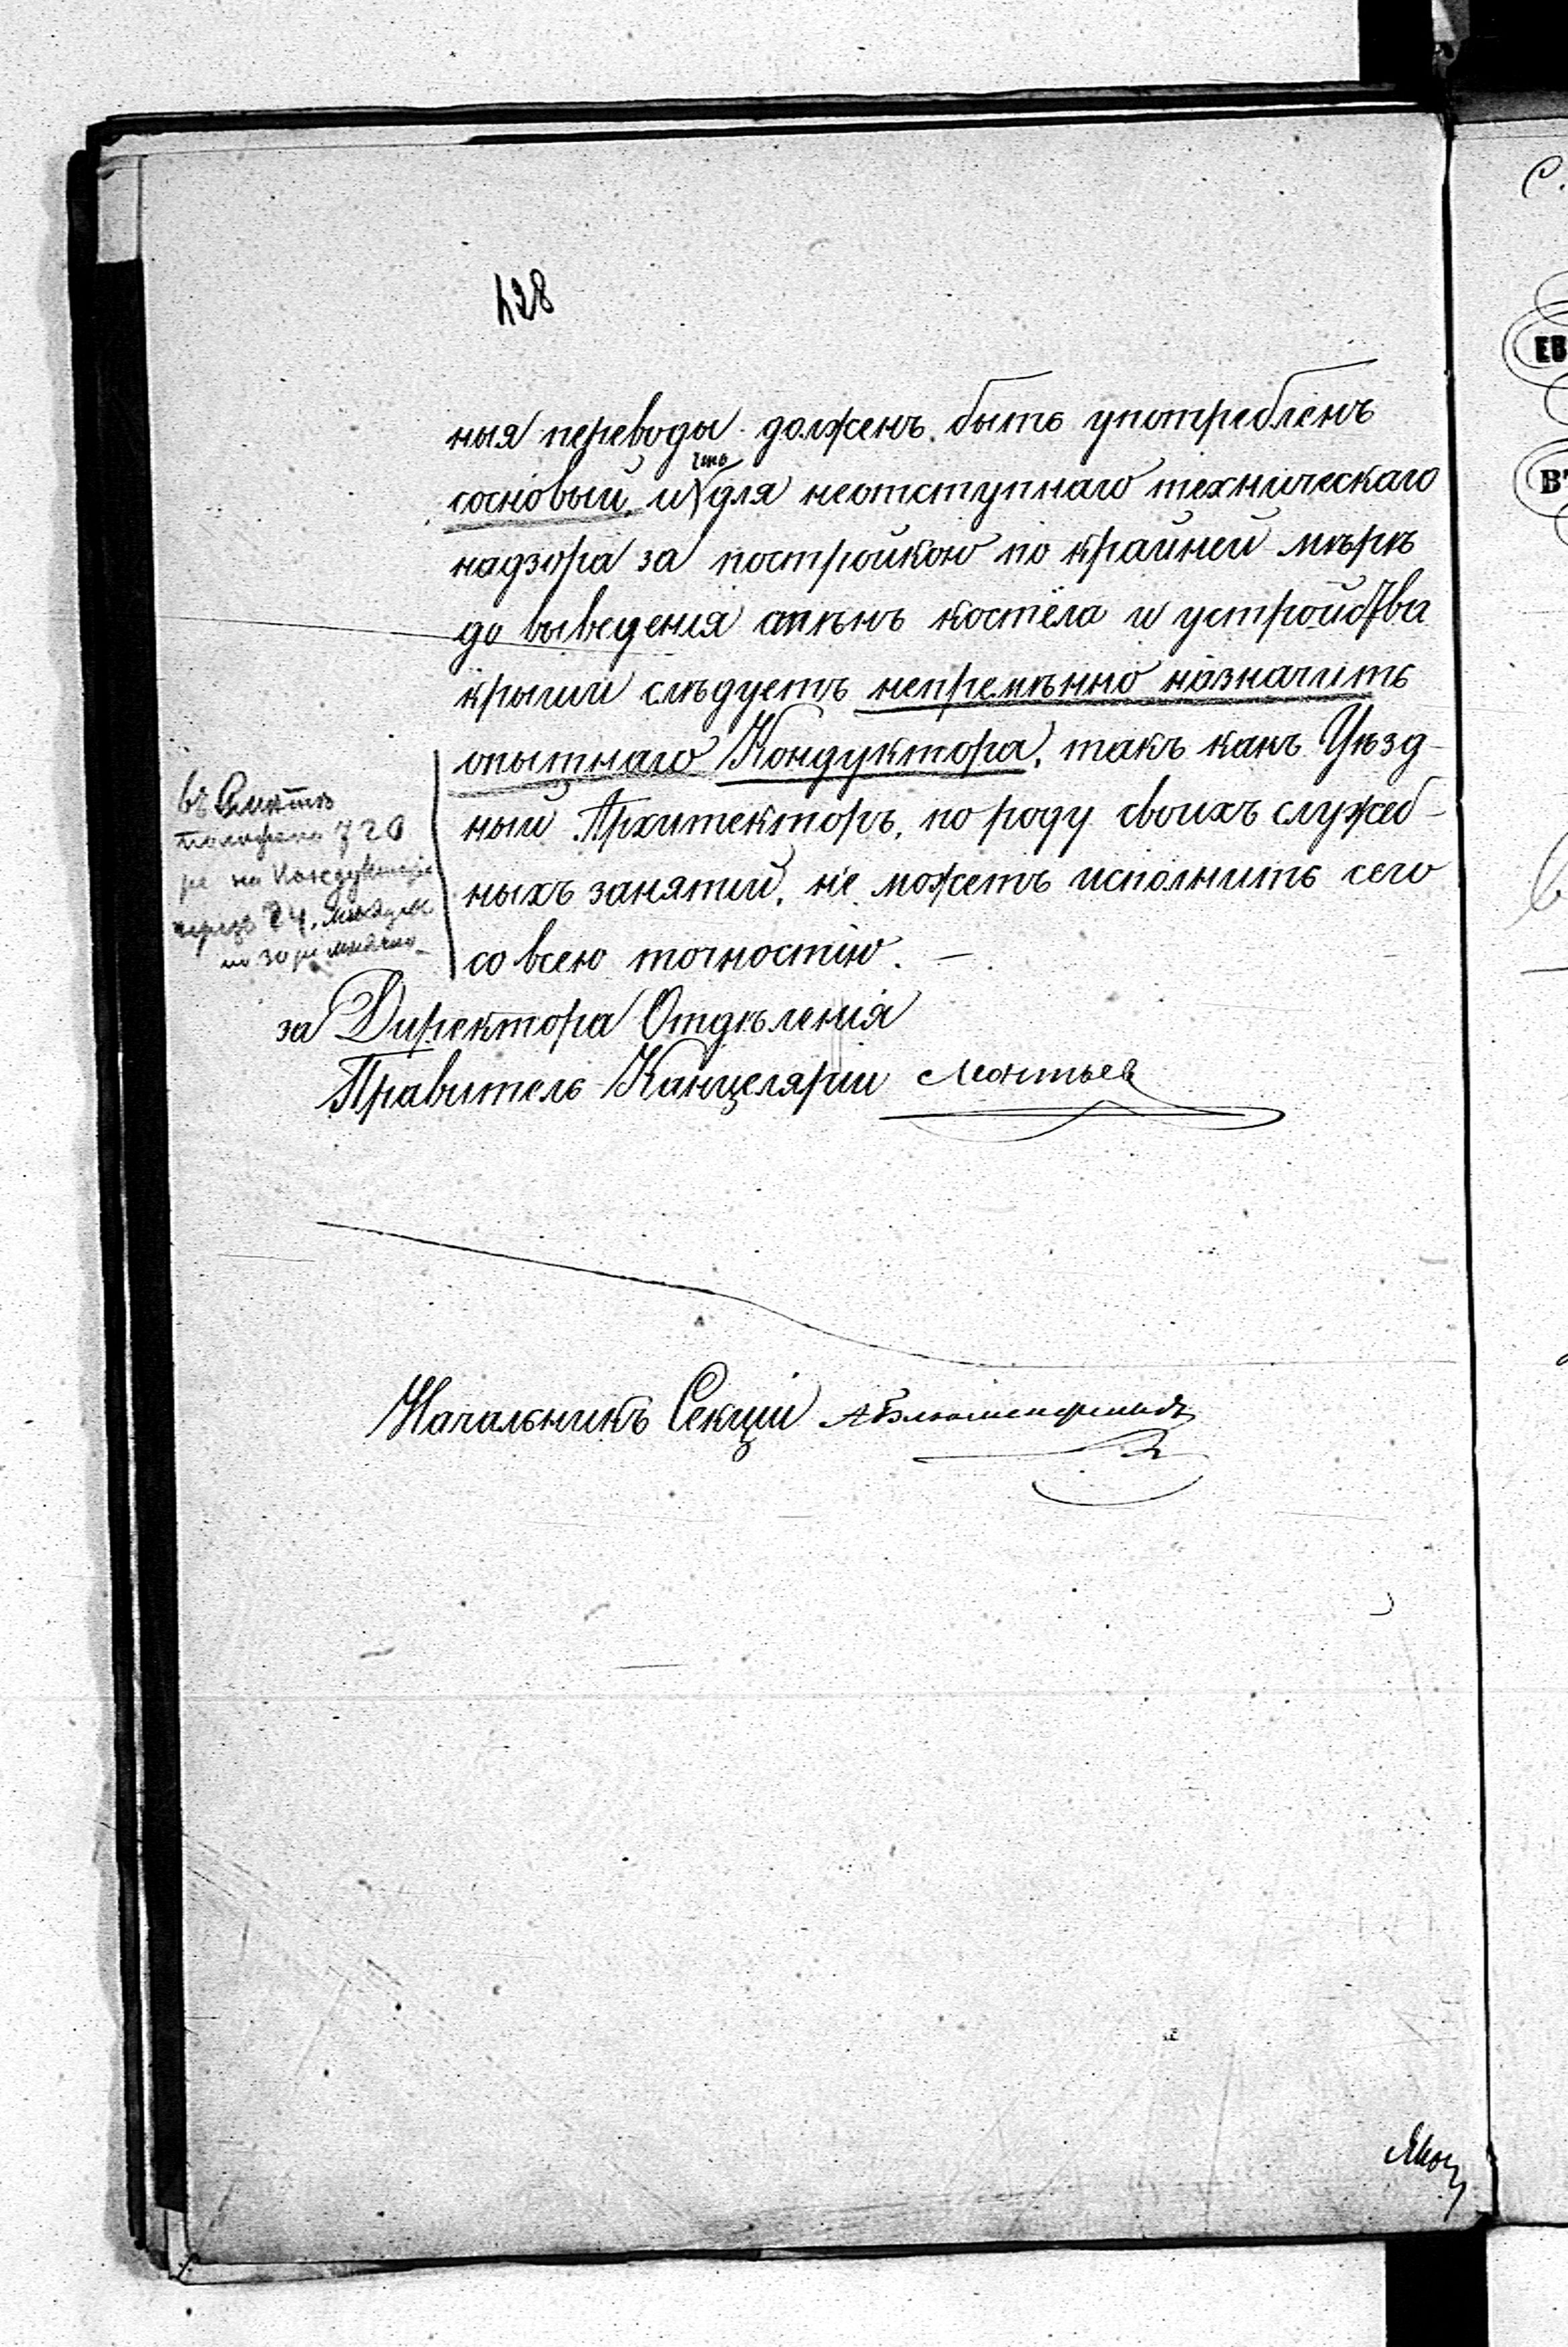 428
ныя переводы долженъ быть употребленъ
что
сосновый, и для неотступнаго техническаго
надзора за постройкою по крайней мѣрѣ
до выведенія стѣнъ костёла и устройства
крыши слѣдуетъ непремѣнно назначить
опытнаго Кондуктора, такъ какъ Уѣзд-
ный Архитекторъ, по роду своихъ служеб-
ныхъ занятій, не можетъ исполнить сего
со всею точностію. —
въ
720
на Кондуктора
по 30 р.
за Директора Отдѣленія
Правитель Канцеляріи Леонтьев
Начальникъ Секціи
С.
ЕВ